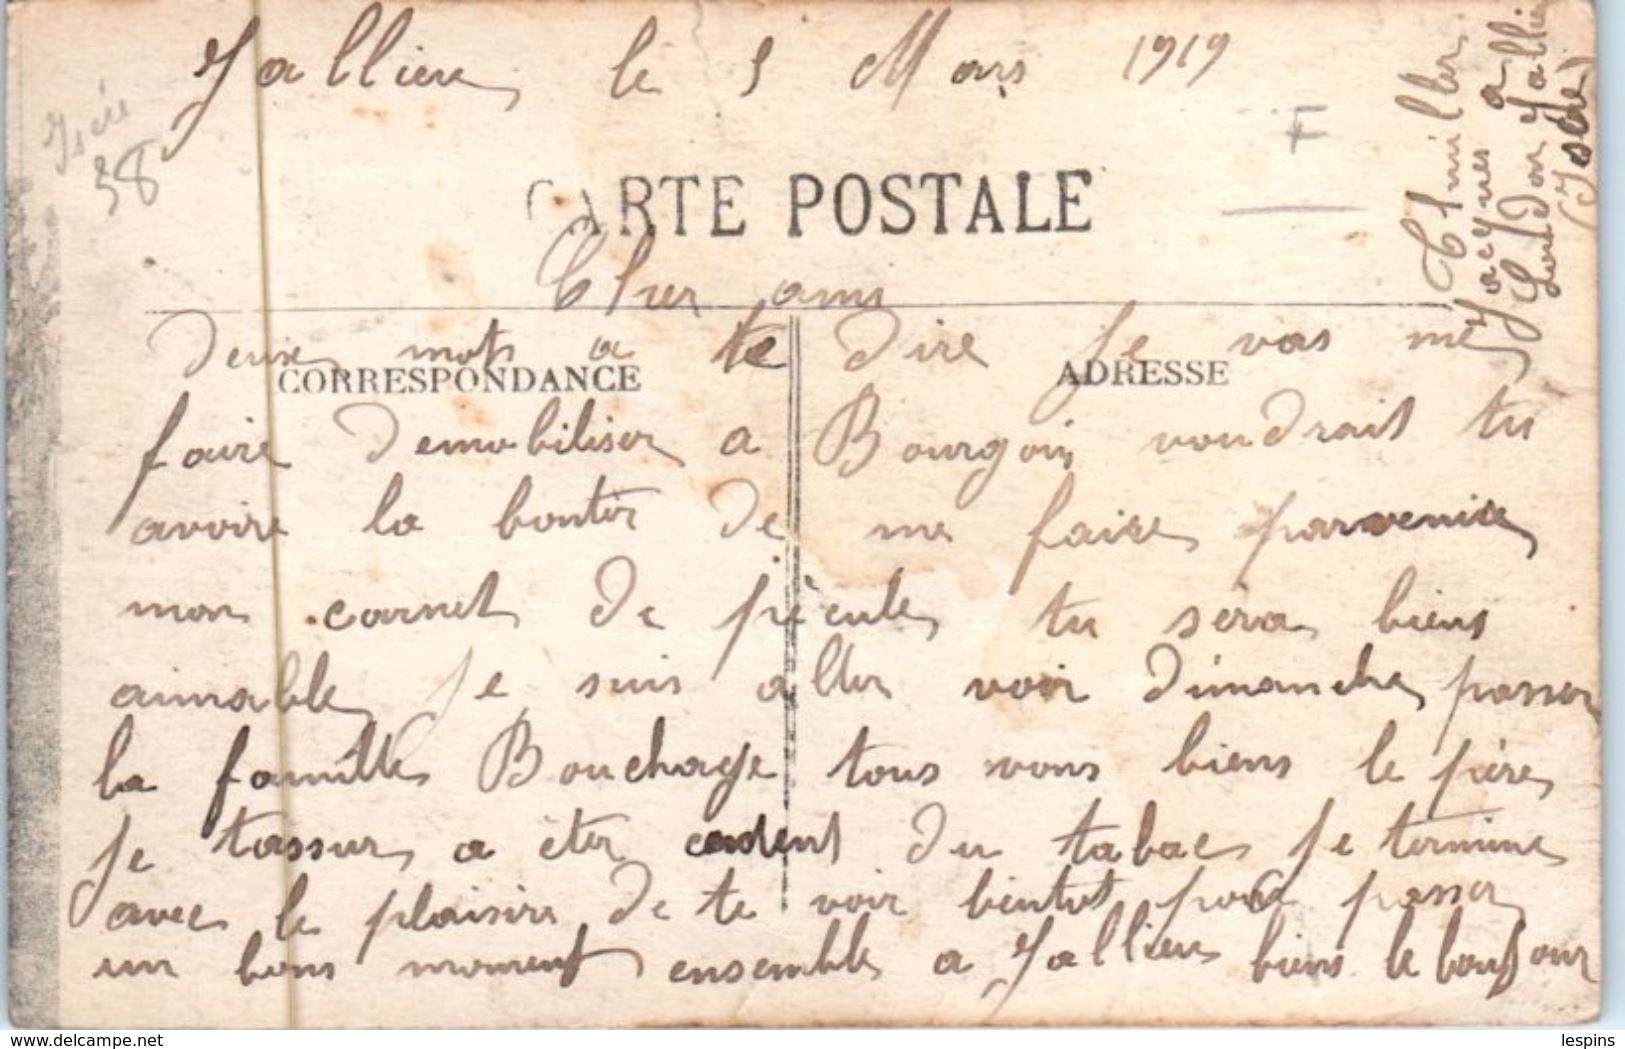 Jallieu le 5 Mars 1919
Isère
38
F
CARTE POSTALE
Cher ami
CORRESPONDANCE
ADRESSE
deux mots a te dire Je vas me
faire demobiliser a Bourgoin voudrait tu
avoire la bonter de me faire parvenire
mon carnet de pècule tu sera biens
aimable Je suis aller voir dimanche passer
la famille Bouchage tous vons biens le père
Je tassur a èter content du tabac Je termine
avec le plaisire de te voir bientot pour passer
un bons moment ensemble a Jallieu biens le bonjour
Jacques a
Jallieu
(Isère)
delcampe.net
lespins